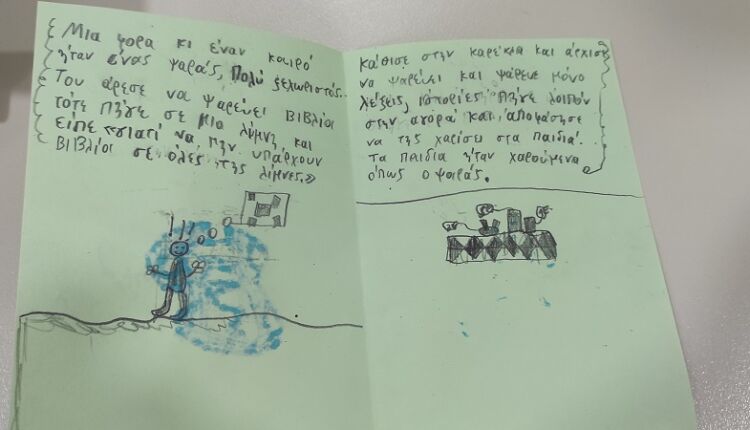 Μια φορα κι έναν καιρό
ήταν ένας ψαράς, πολύ ξεχωριστός..
Του άρεσε να ψαρεύει βιβλίοι
τότε πήγε σε μια λύμνη και
είπε «γιατί να μην υπάρχουν
βιβλίοι σε όλες της λίμνες.»
!!!
κάθισε στην καρέκλα και άρχισε
να ψαρεύει και ψάρευε μόνο
λέξεις, ιστορίες πήγε λοιπόν
στην αγορά και αποφάσησε
να της χαρίσει στα παιδιά..
τα παιδιά ήταν χαρούμενα
όπως ο ψαράς.